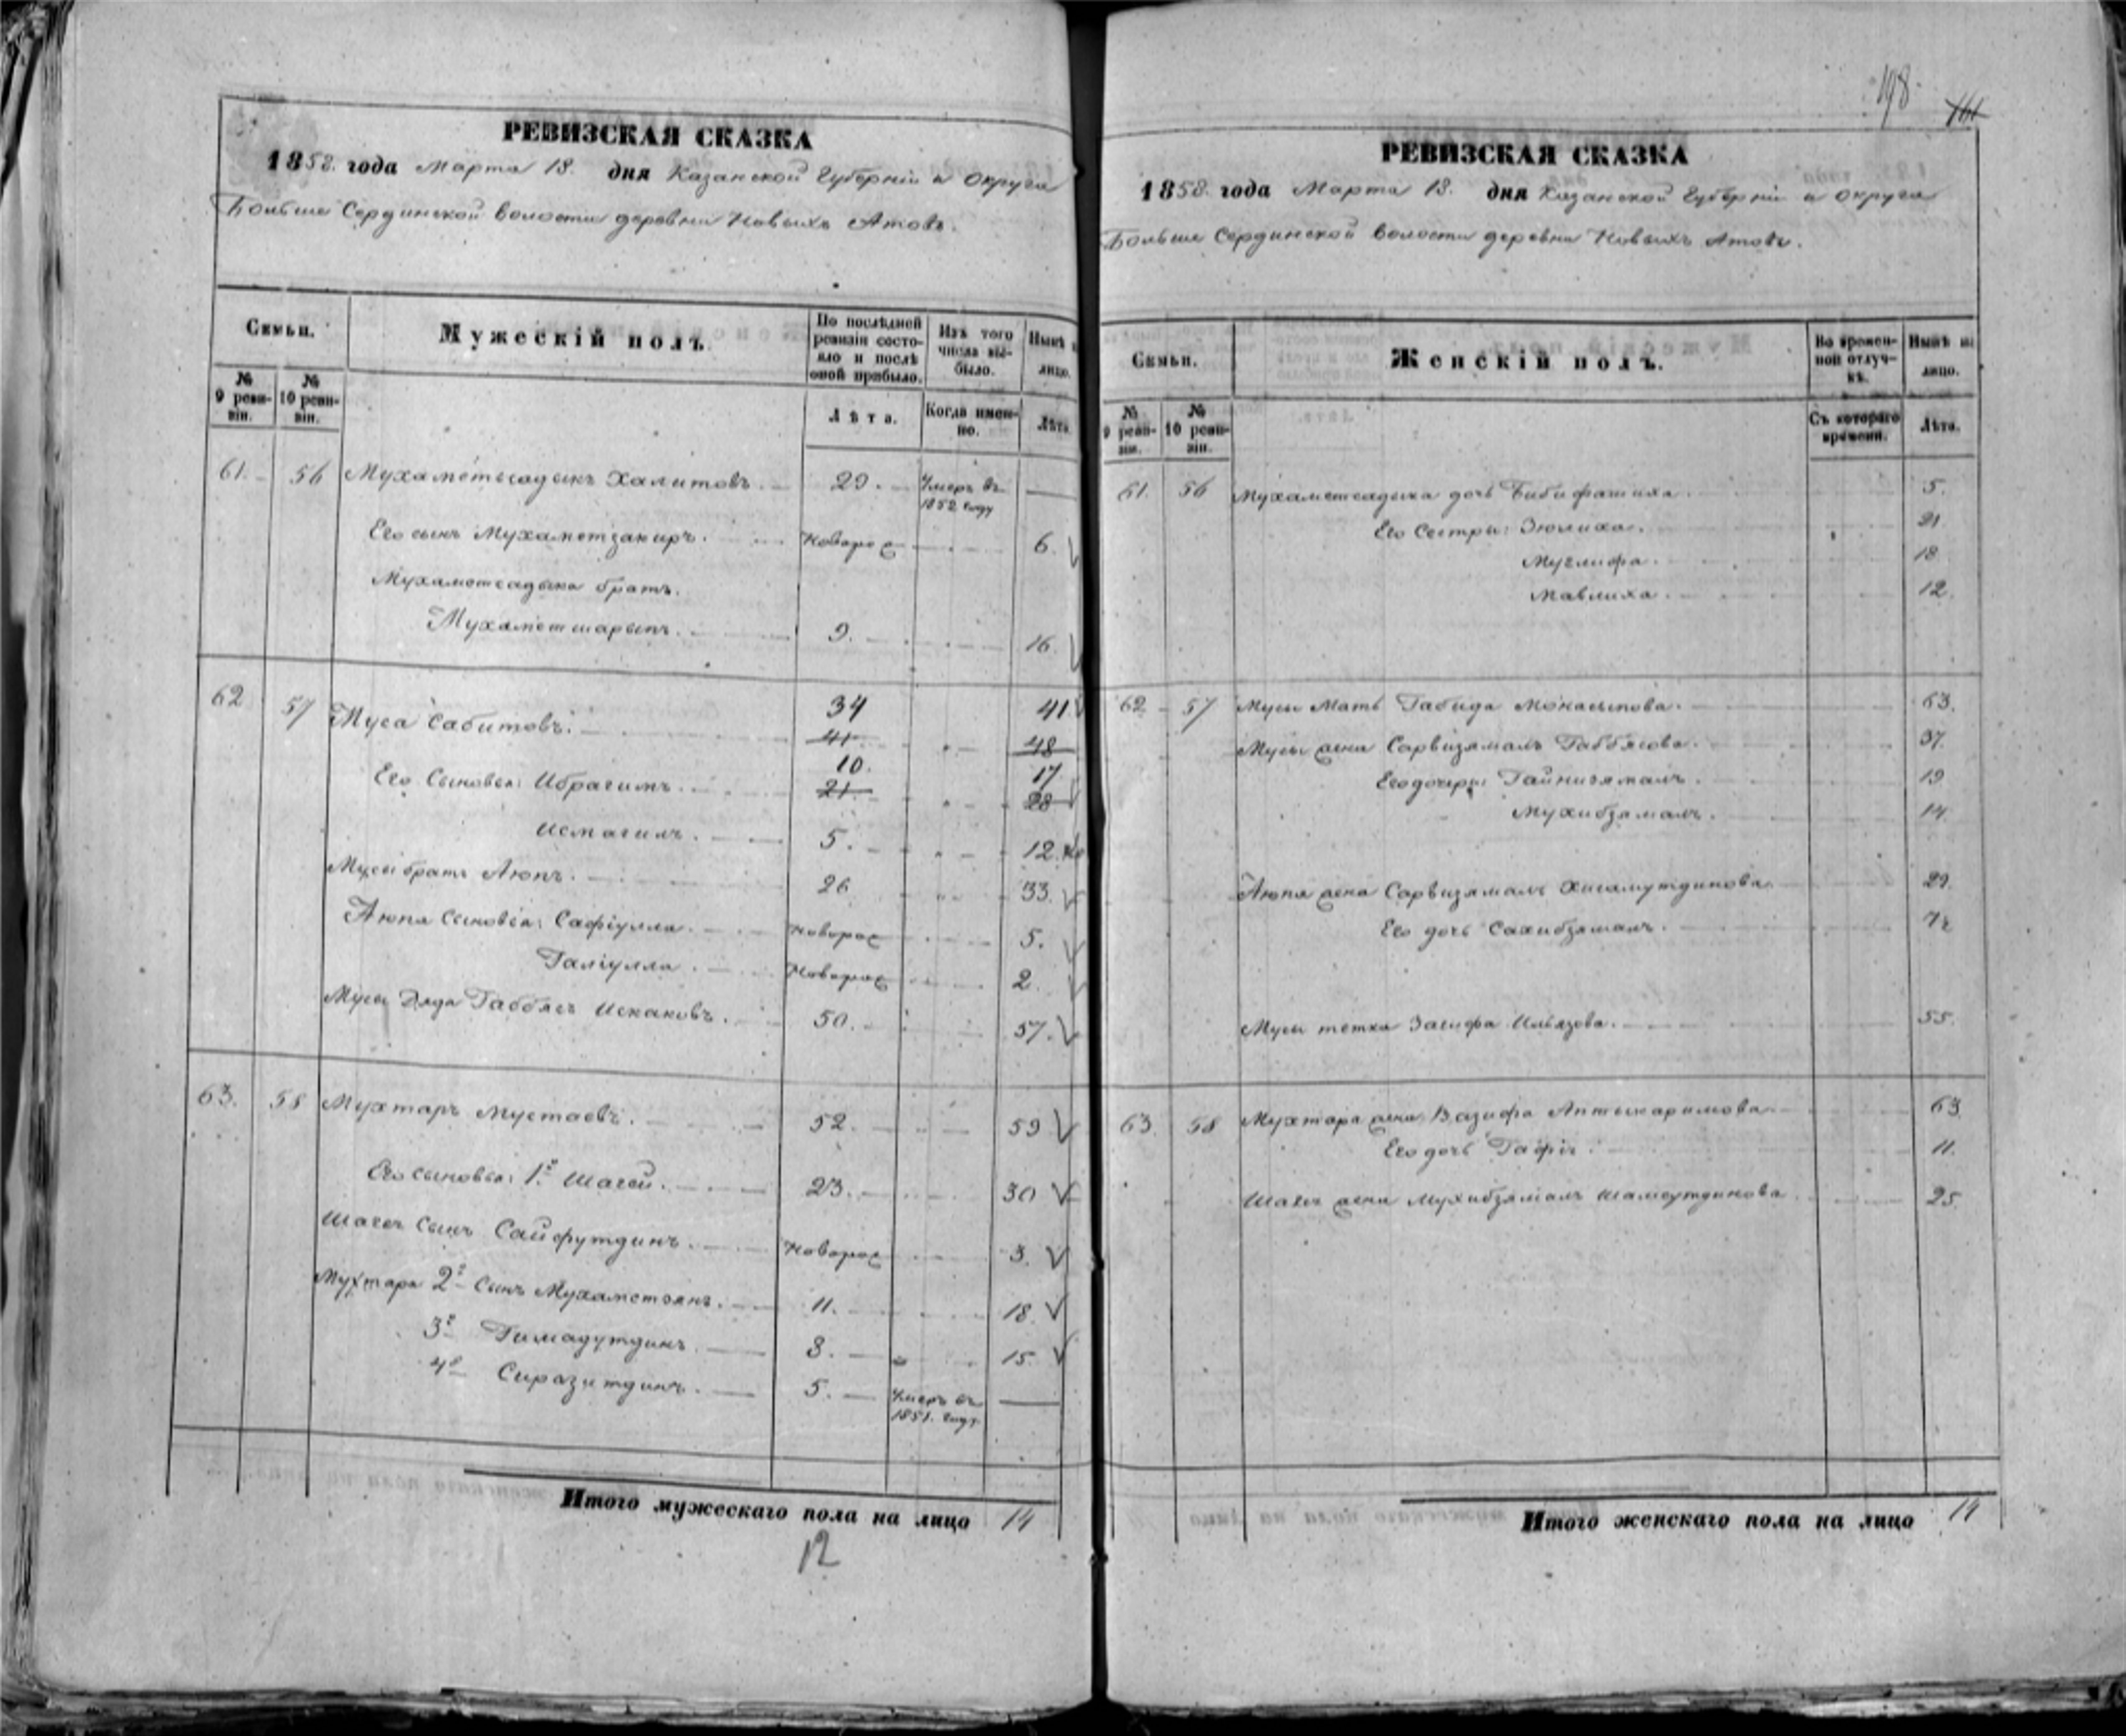 РЕВИЗСКАЯ СКАЗКА
1858. года Марта 13. дня Казанской Губерніи и округа
Больше Сердинской волости деревни Новыхъ Атовъ.
Семьи.
Мужескій полъ.
По послѣдней ревизіи состояло и послѣ оной прибыло.
Изъ того числа выбыло.
Нынѣ на лицо.
№ 9 ревизіи.
№ 10 ревизіи.
Лѣта.
Когда именно.
Лѣта.
61. 56 Мухаметьсадыкъ Халитовъ. 29. Умеръ въ 1852 году
Его сынъ Мухаметзакиръ. Новорож 6.
Мухаметсадыка братъ.
Мухаметшарыпъ. 9. 16.
62 57 Муса Сабитовъ. 34 41
41 48
10. 17
Его Сыновья: Ибрагимъ. 21 28
Исмагилъ. 5. 12.
Мусы братъ Аюпъ. 26 33.
Аюпа Сыновья: Сафіулла. Новорож 5.
Галіулла. Новорож 2.
Мусы Дядя Габбясъ Искаковъ. 50. 57.
63. 58 Мухтаръ Мустаевъ. 52. 59
Его сыновья: 1й Шагей. 23. 30
Шагея Сынъ Сайфутдинъ. Новорож 3.
Мухтара 2й Сынъ Мухаметзянъ. 11. 18.
3й Гимадутдинъ. 8. 15.
4й Сиразитдинъ. 5. Умеръ въ 1851. году.
Итого мужескаго пола на лицо 14
12
198
РЕВИЗСКАЯ СКАЗКА
1858. года Марта 13. дня Казанской Губерніи и округа
Больше Сердинской волости деревни Новыхъ Атовъ.
Семьи.
Женскій полъ.
Во временной отлучкѣ.
Нынѣ на лицо.
№ 9 ревизіи.
№ 10 ревизіи.
Съ котораго времени.
Лѣта.
61. 56 Мухаметсадыка дочь Бибифатиха. 5.
Его Сестры: Зюлиха. 21.
Муглифа. 18
Мавлиха. 12.
62 57 Мусы Мать Габида 63.
Мусы жена Сарвизямалъ Габбясова. 37.
Его дочери: Гайнизямалъ. 19
Мухибзямалъ. 14.
Аюпа жена Сарвизямалъ Хисамутдинова. 29.
Его дочь Сахибзямалъ.
Мусы тетка Загифа Ильязова. 55.
63. 58 Мухтара жена Вазифа Аптыкаримова. 63
Его дочь 11.
Шагея жена Мухибзямалъ Шамсутдинова. 25.
Итого женскаго пола на лицо 14